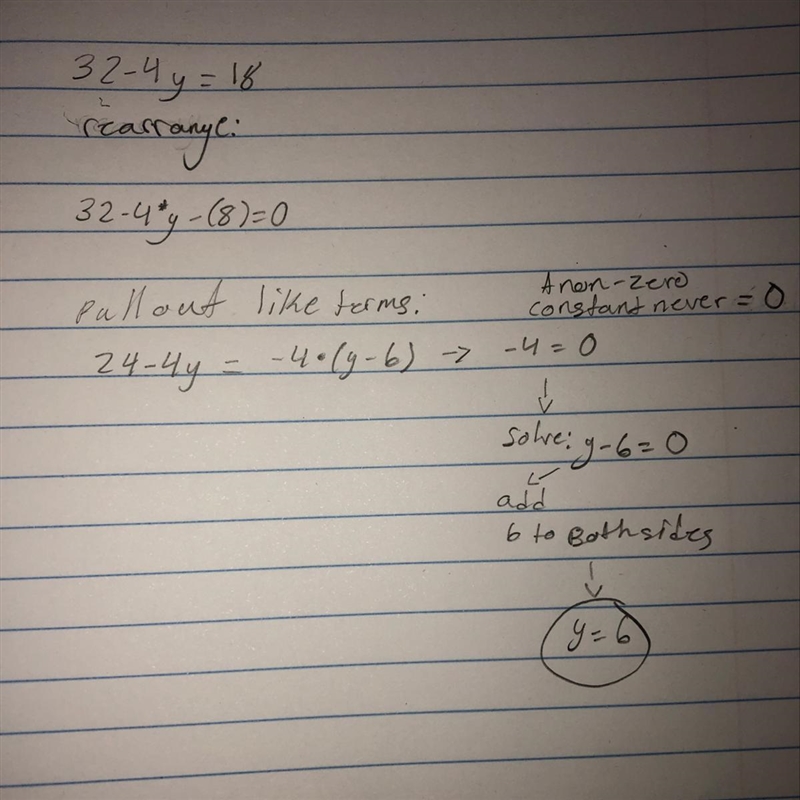 32-4y = 18
rearrange:
32-4*y-(8)=0
pull out like terms:
A non-zero
constant never = 0
24-4y = -4•(y-6) → -4 = 0
↓
solve: y-6=0
add
6 to Both sides
↓
y=6